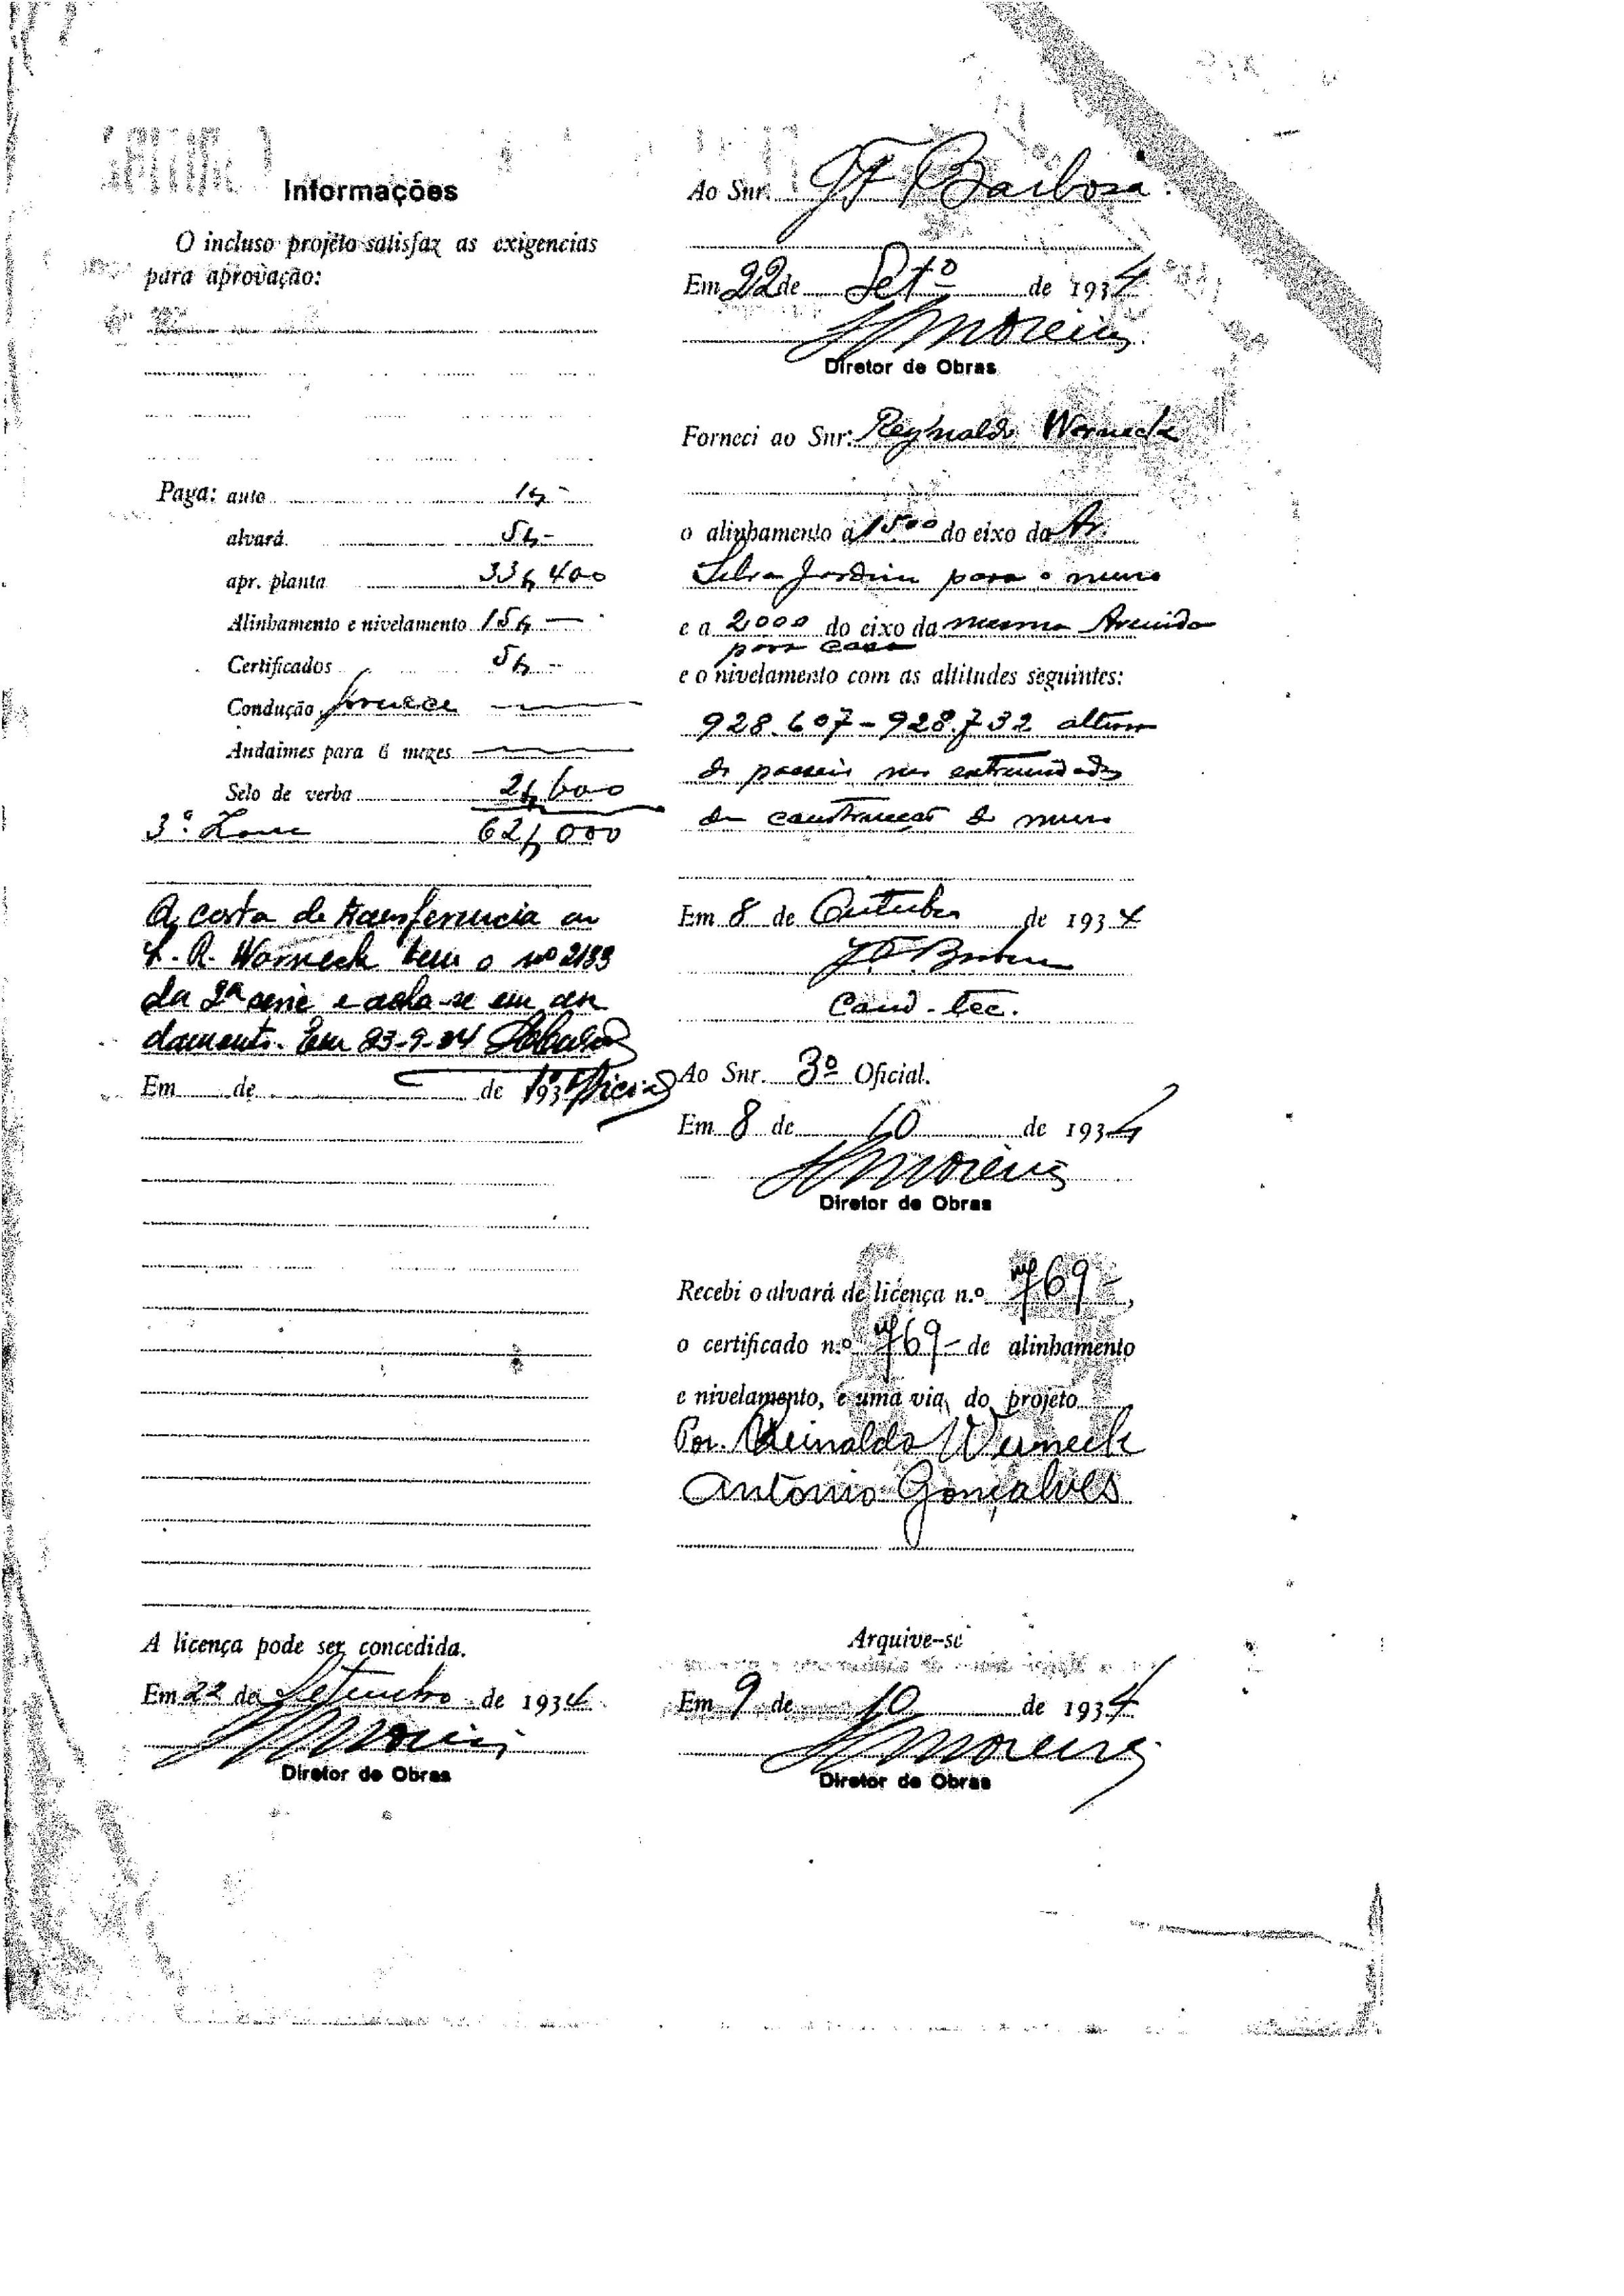 Informações
O incluso projéto satisfaz as exigencias
para aprovação:
Paga: auto 1$-
alvará 5$-
apr. planta 33$400
Alinhamento e nivelamento 15$ —
Certificados 5$-
Condução fornece —
Andaimes para 6 mezes —
Selo de verba 2$600
3ª Zona 62$000
A carta de transferencia a
R. Werneck tem o nº 2133
da 2ª serie e acha-se em an
damento. Em 23-9-34
Em de de 193
A licença pode ser concedida.
Em 22 de Setembro de 1934
Moreira
Diretor de Obras
Ao Snr. Barbosa
Em 22 de Setº de 1934
Moreira
Diretor de Obras
Forneci ao Snr: Reynaldo Werneck
o alinhamento a 1500 do eixo da Av.
Silva Jardim para o muro
e a 2000 do eixo da mesma Avenida
para casa
e o nivelamento com as altitudes seguintes:
928.607-928.732 altura
do passeio nas extremidades
da construcção do muro
Em 8 de Outubro de 1934
Cond. tec.
Ao Snr. 3º Oficial.
Em 8 de 10 de 1934
Moreira
Diretor de Obras
Recebi o alvará de licença n.º 769-,
o certificado n.º 769- de alinhamento
e nivelamento, e uma via, do projéto
Por. Reinaldo Werneck
Antonio Gonçalves
Arquive-se
Em 9 de 10 de 1934
Moreira
Diretor de Obras